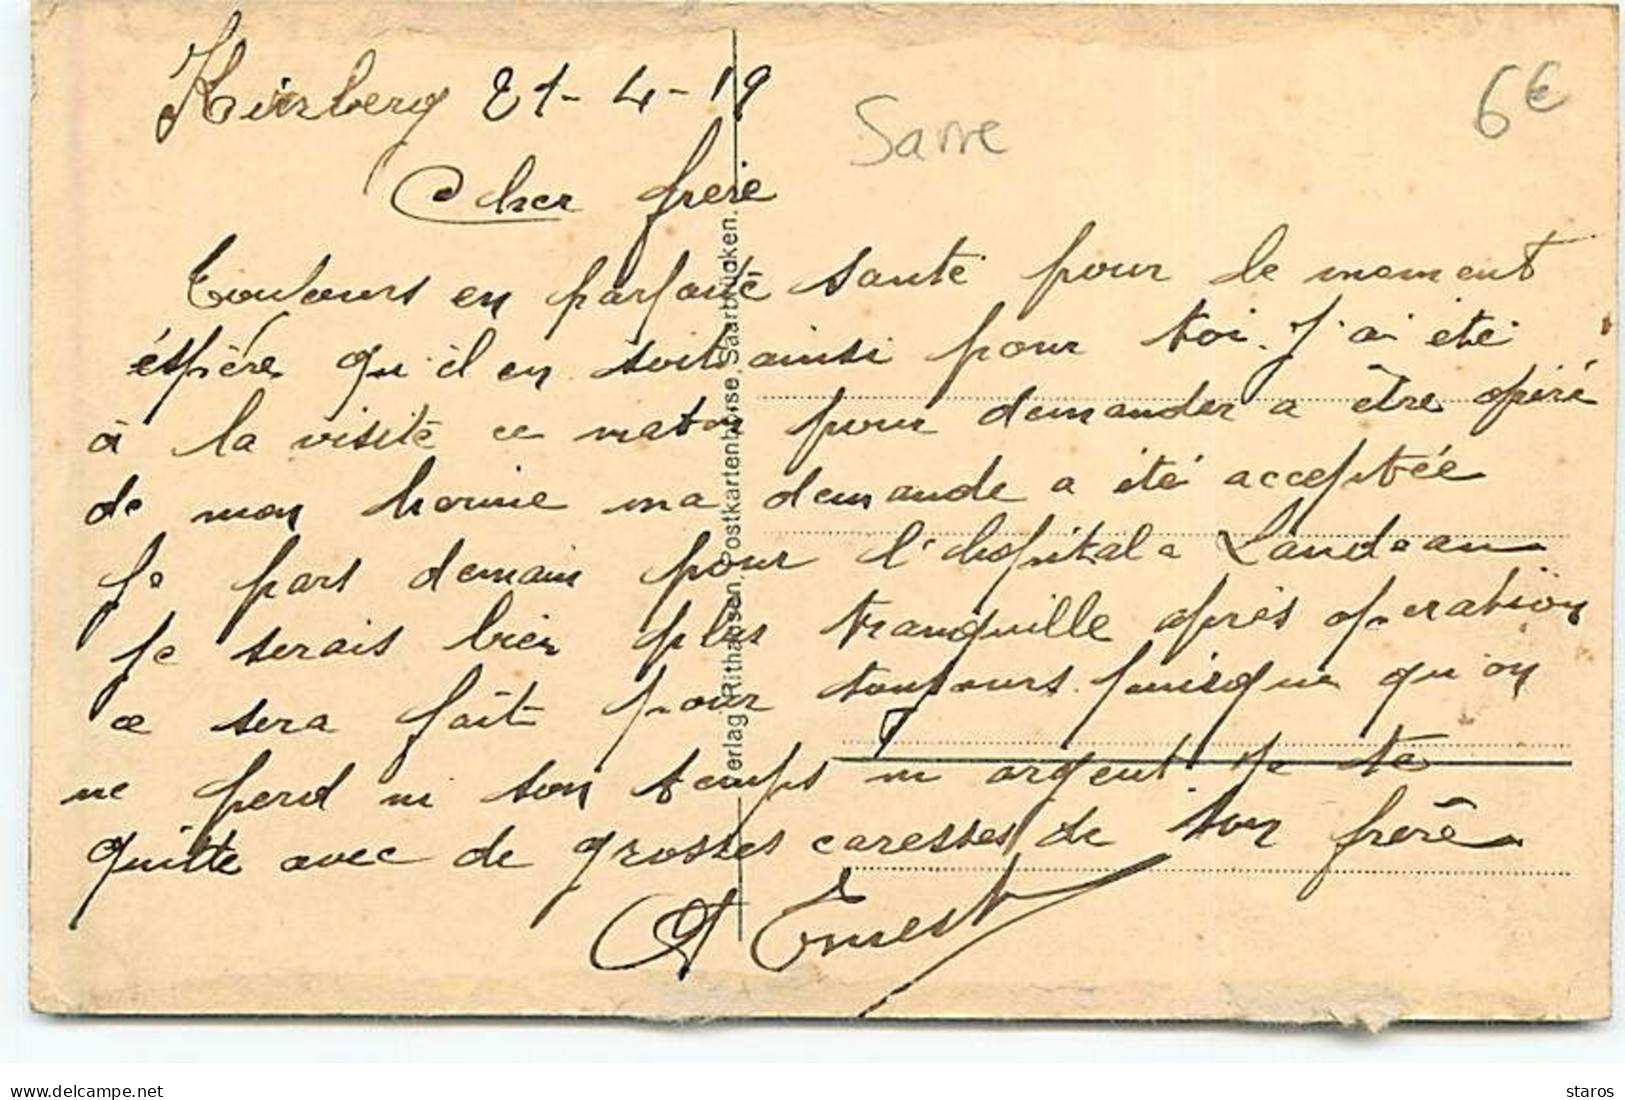 Kirzberg 21-4-19
Sarre
6€
Cher frere
Toujours en parfaite santé pour le moment
éspère qu'il en soit ainsi pour toi. J'ai été
à la visite ce matin pour demander a être opéré
de mon hernie ma demande a été acceptée
Je pars demain pour l'hopital a Landeau
Je serais bien plus tranquille après operation
ce sera fait pour toujours puisque qu'on
ne perd ni son temps ni argent Je te
quitte avec de grosses caresses de ton frère
Ernest
Verlag Rithausen, Postkartenbörse, Saarbrücken.
delcampe.net
staros